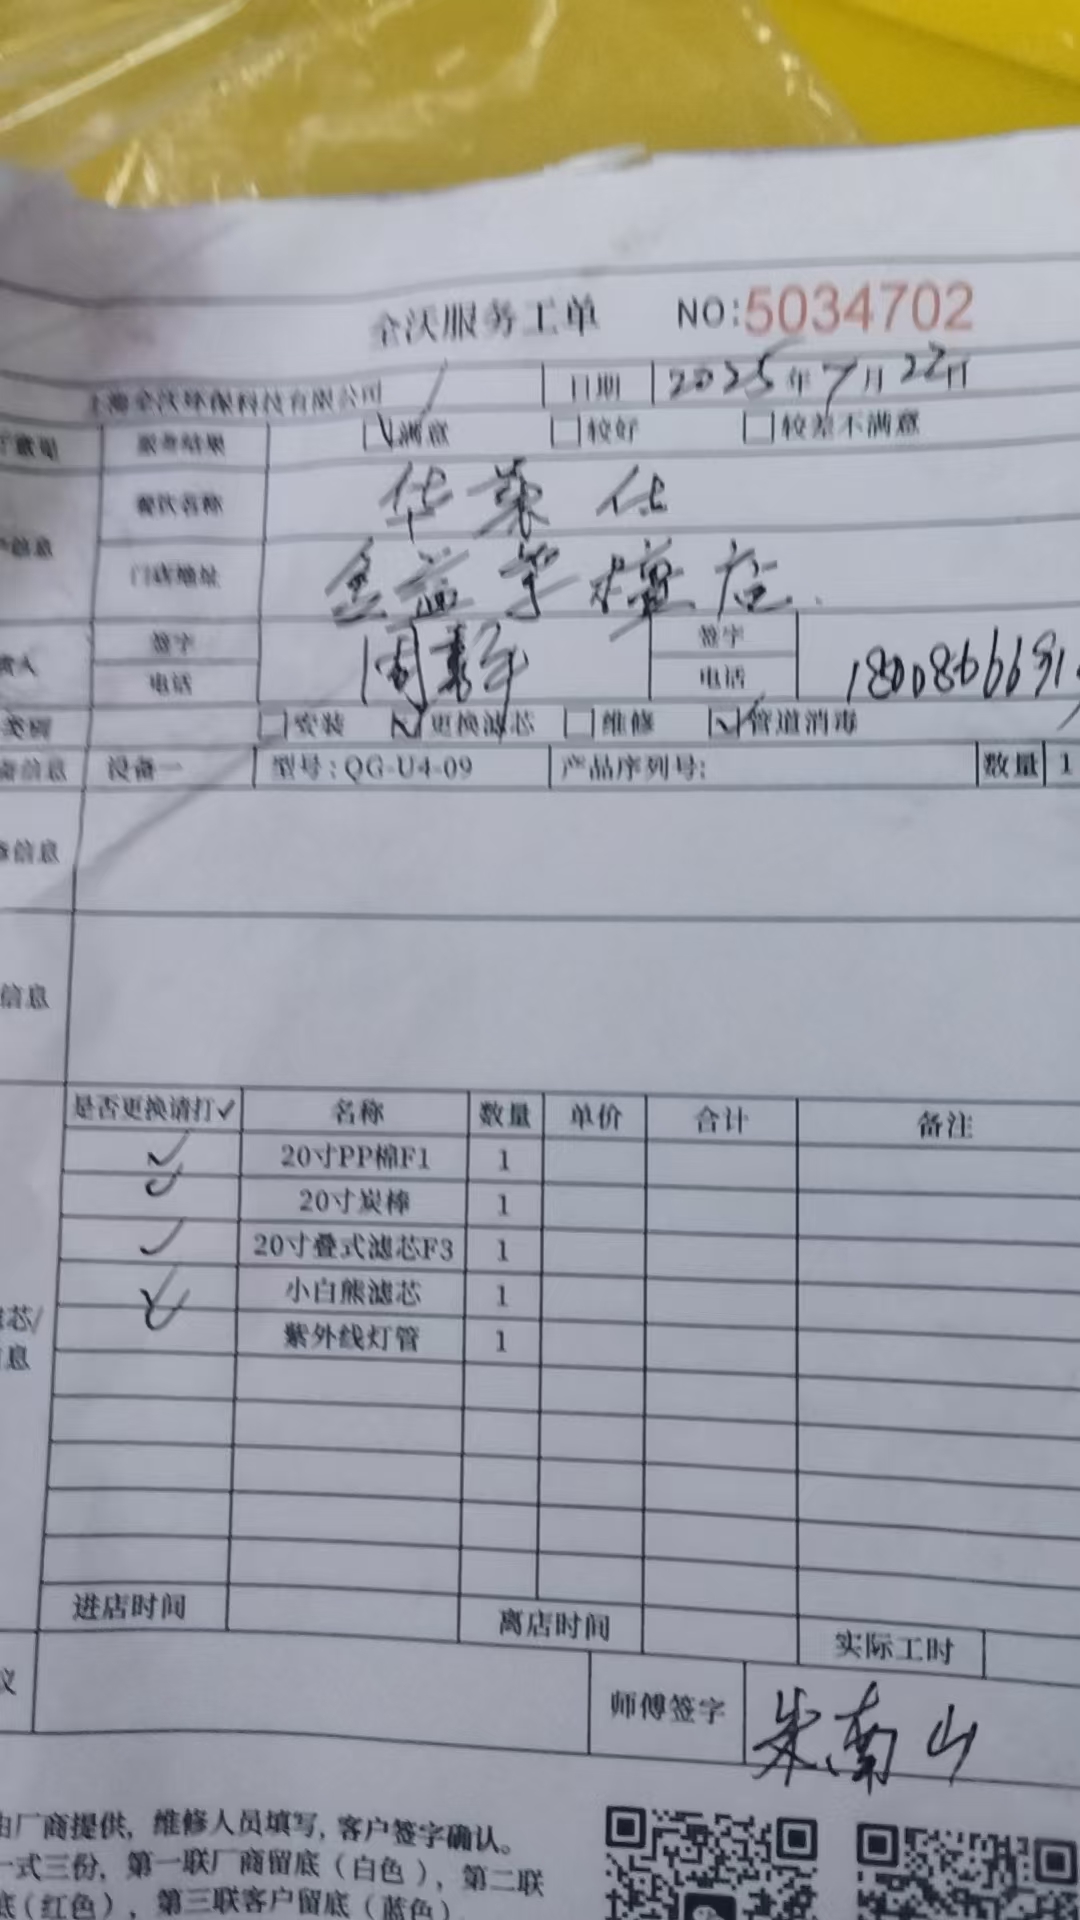 全沃服务工单 NO:5034702
上海全沃环保科技有限公司 日期 2025年7月22日
服务结果 满意 较好 较差不满意
餐饮名称 华莱仕
信息
门店地址 店
签字 周 签字
电话 电话
类别 安装 更换滤芯 维修 管道消毒
备信息 设备一 型号:QG-U4-09 产品序列号: 数量 1
信息
信息
是否更换请打✓ 名称 数量 单价 合计 备注
✓ 20寸PP棉F1 1
✓ 20寸炭棒 1
✓ 20寸叠式滤芯F3 1
小白熊滤芯 1
紫外线灯管 1
芯/
息
进店时间 离店时间 实际工时
议 师傅签字 朱南山
由厂商提供, 维修人员填写, 客户签字确认。
一式三份, 第一联厂商留底(白色), 第二联
底(红色), 第三联客户留底(蓝色)